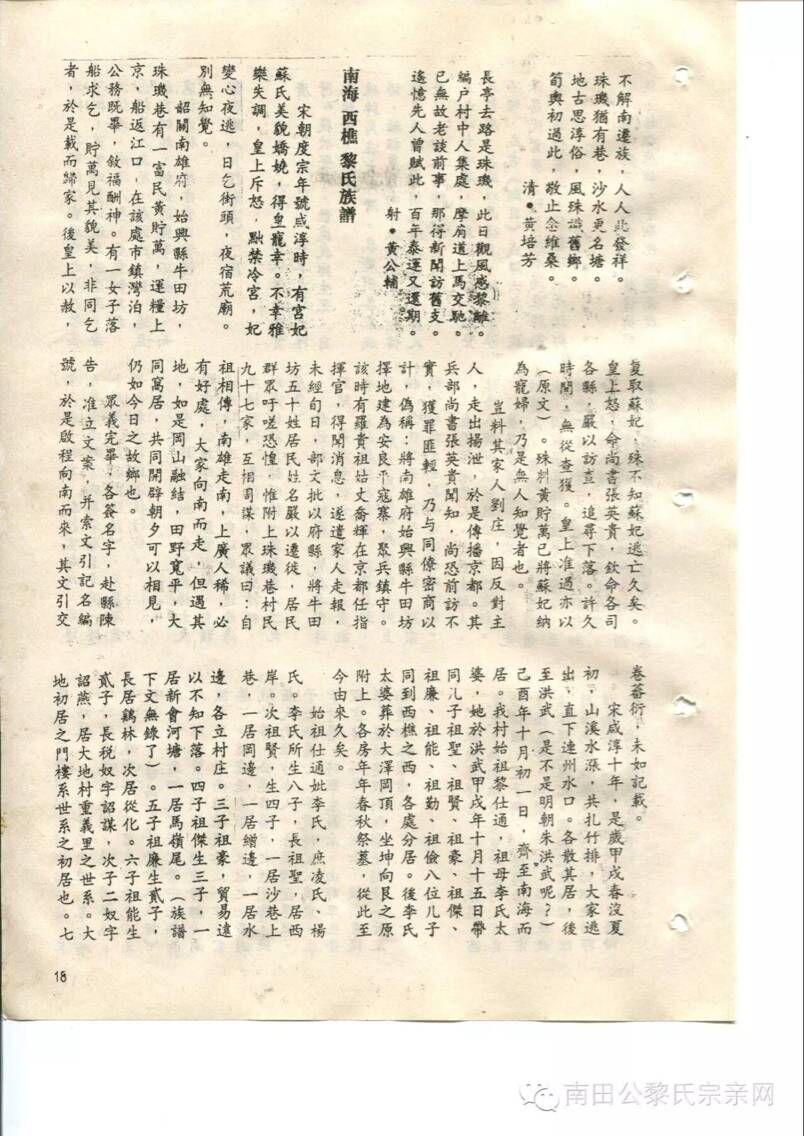 不解南遷族，人人此發祥。
珠璣猶有巷，沙水更名塘。
地古思淳俗，風殊識舊鄉。
筍輿初過此，敬止念維桑。
清•黃培芳
長亭去路是珠璣，此日觀風感黎離。
編户村中人集處，摩肩道上馬交馳。
已無故老談前事，那得新聞訪舊支。
遙憶先人曾賦此，百年泰運又還期。
射•黃公輔
南海西樵黎氏族譜
宋朝度宗年號咸淳時，有宫妃
蘇氏美貌嬌嬈，得皇寵幸。不幸雅
樂失調，皇上斥怒，黜禁冷宮，妃
變心夜逃，日乞街頭，夜宿荒廟。
別無知覺。
韶關南雄府，始興縣牛田坊，
珠璣巷有一富民黃貯萬，運糧上
京，船返江口，在該處市鎮灣泊，
公務既畢，敘福酬神。有一女子落
船求乞，貯萬見其貌美，非同乞
者，於是載而歸家。後皇上以赦，
复取蘇妃，殊不知蘇妃逃亡久矣。
皇上怒，命尚書張英貴，欽命各司
各縣，嚴以訪查，追尋下落。許久
時間，無從查獲。皇上准過亦以
（原文）。殊料黃貯萬已將蘇妃納
為寵婦，乃是無人知覺者也。
豈料其家人劉庄，因反對主
人，走出揚泄，於是傳播京都。其
兵部尚書張英貴聞知，尚恐前訪不
實，獲罪匪輕，乃与同僚密商以
計，偽稱：將南雄府始興縣牛田坊
擇地建為安良平寇寨，聚兵鎮守。
該時有羅貴祖姑丈喬輝在京都任指
揮官，得聞消息，遂遣家人走報，
未經旬日，部文批以府縣，將牛田
坊五十姓居民姓名嚴以遷徙，居民
群眾吁嗟恐惶，惟附上珠璣巷村民
九十七家，互相周謀，眾議曰：自
祖相傳，南雄走南，上廣人稀，必
有好處，大家向南而走，但遇其
地，如是岡山融結，田野寬平，大
同寓居，共同開辟朝夕可以相見，
仍如今日之故鄉也。
眾義完畢，各簽名字，赴縣陳
告，准立文案，并索文引記名編
號，於是啟程向南而來，其文引交
卷蕃衍，未如記載。
宋咸淳十年，是歲甲戌春沒夏
初，山溪水漲，共扎竹排，大家逃
出，直下連州水口。各散其居，後
至洪武（是不是明朝朱洪武呢？）
己酉年十月初一日，齊至南海而
居。我村始祖黎仕通，祖母李氏太
婆，她於洪武甲戌年十月十五日帶
同儿子祖聖、祖賢、祖豪、祖傑、
祖廉、祖能、祖勤、祖儉八位儿子
同到西樵之西，各處分居。後李氏
太婆葬於大澤岡頂，坐坤向艮之原
附上。各房年年春秋祭墓，從此至
今由來久矣。
始祖仕通妣李氏，庶凌氏、楊
氏。李氏所生八子，長祖聖，居西
岸。次祖賢，生四子，一居沙巷上
巷，一居岡邊，一居繒邊，一居水
邊，各立村庄。三子祖豪，貿易遠
以不知下落。四子祖傑生三子，一
居新會河塘，一居馬嶺尾。（族譜
下文無錄了）。五子祖廉生貳子，
長居鷄林，次居從化。六子祖能生
貳子，長税奴字詔謀，次子二奴字
詔燕，居大地村重義里之世系。大
地初居之門樓系世系之初居也。七
18
南田公黎氏宗亲网